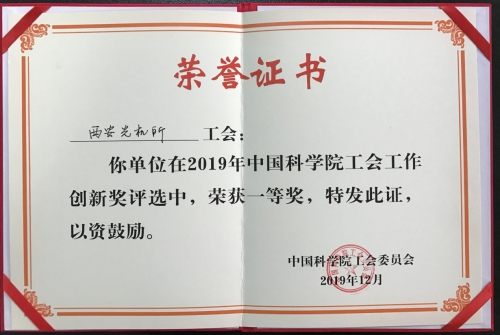 荣誉证书
西安光机所 工会:
你单位在2019年中国科学院工会工作
创新奖评选中，荣获一等奖，特发此证，
以资鼓励。
中国科学院工会委员会
2019年12月